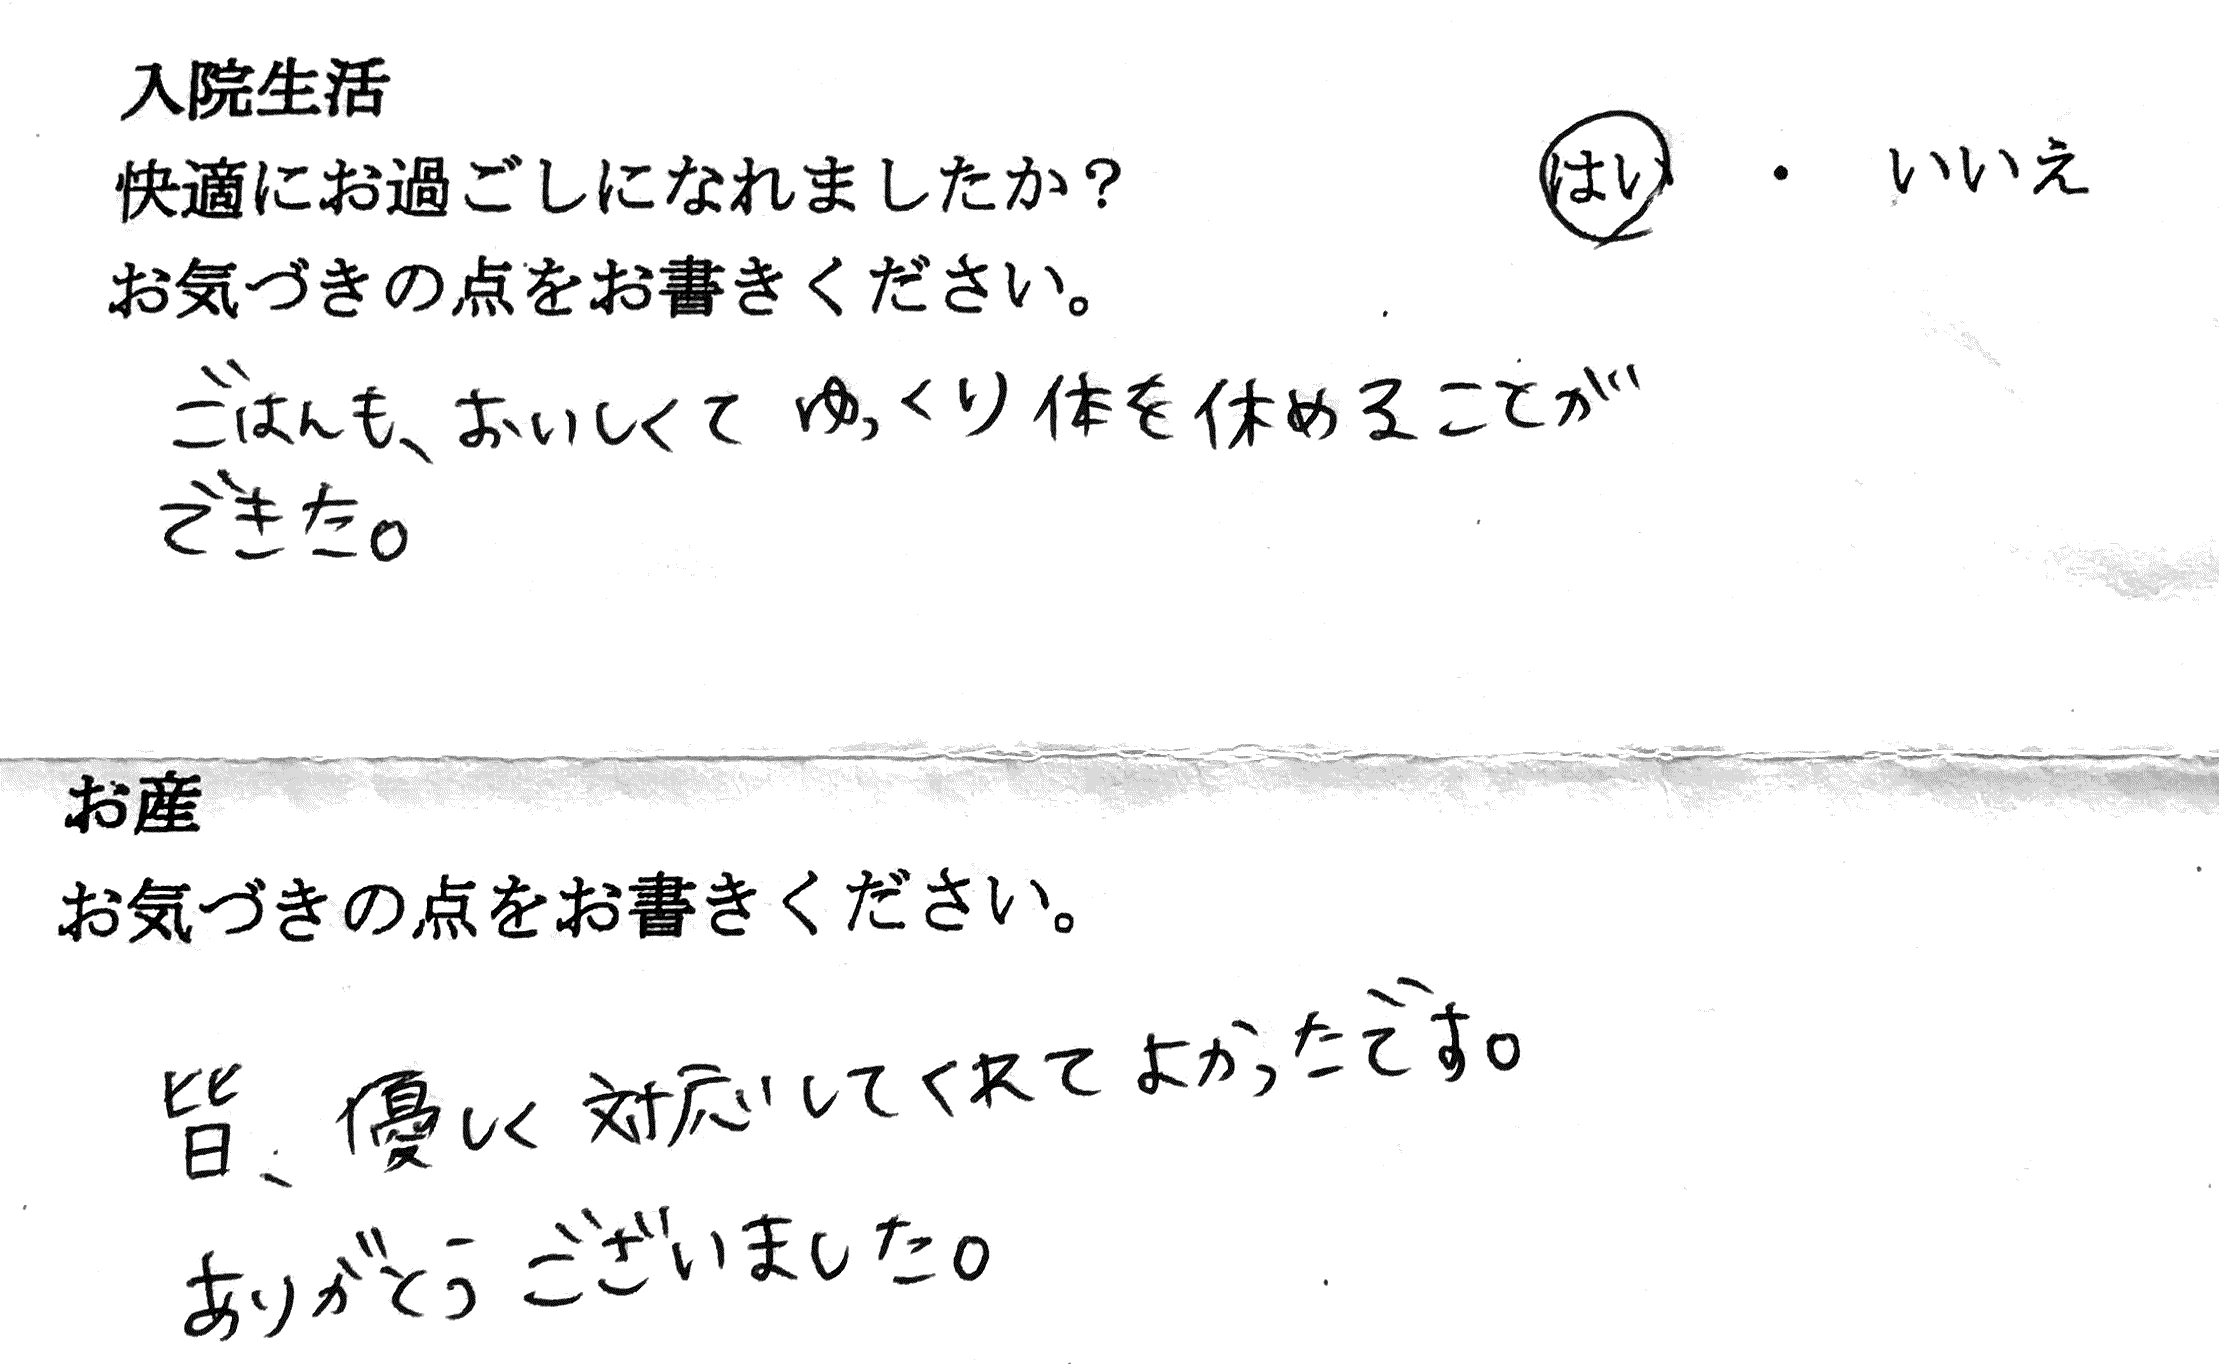 入院生活
快適にお過ごしになれましたか？ はい ・ いいえ
お気づきの点をお書きください。
ごはんも、おいしくてゆっくり体を休めることが
できた。
お産
お気づきの点をお書きください。
皆、優しく対応してくれてよかったです。
ありがとうございました。